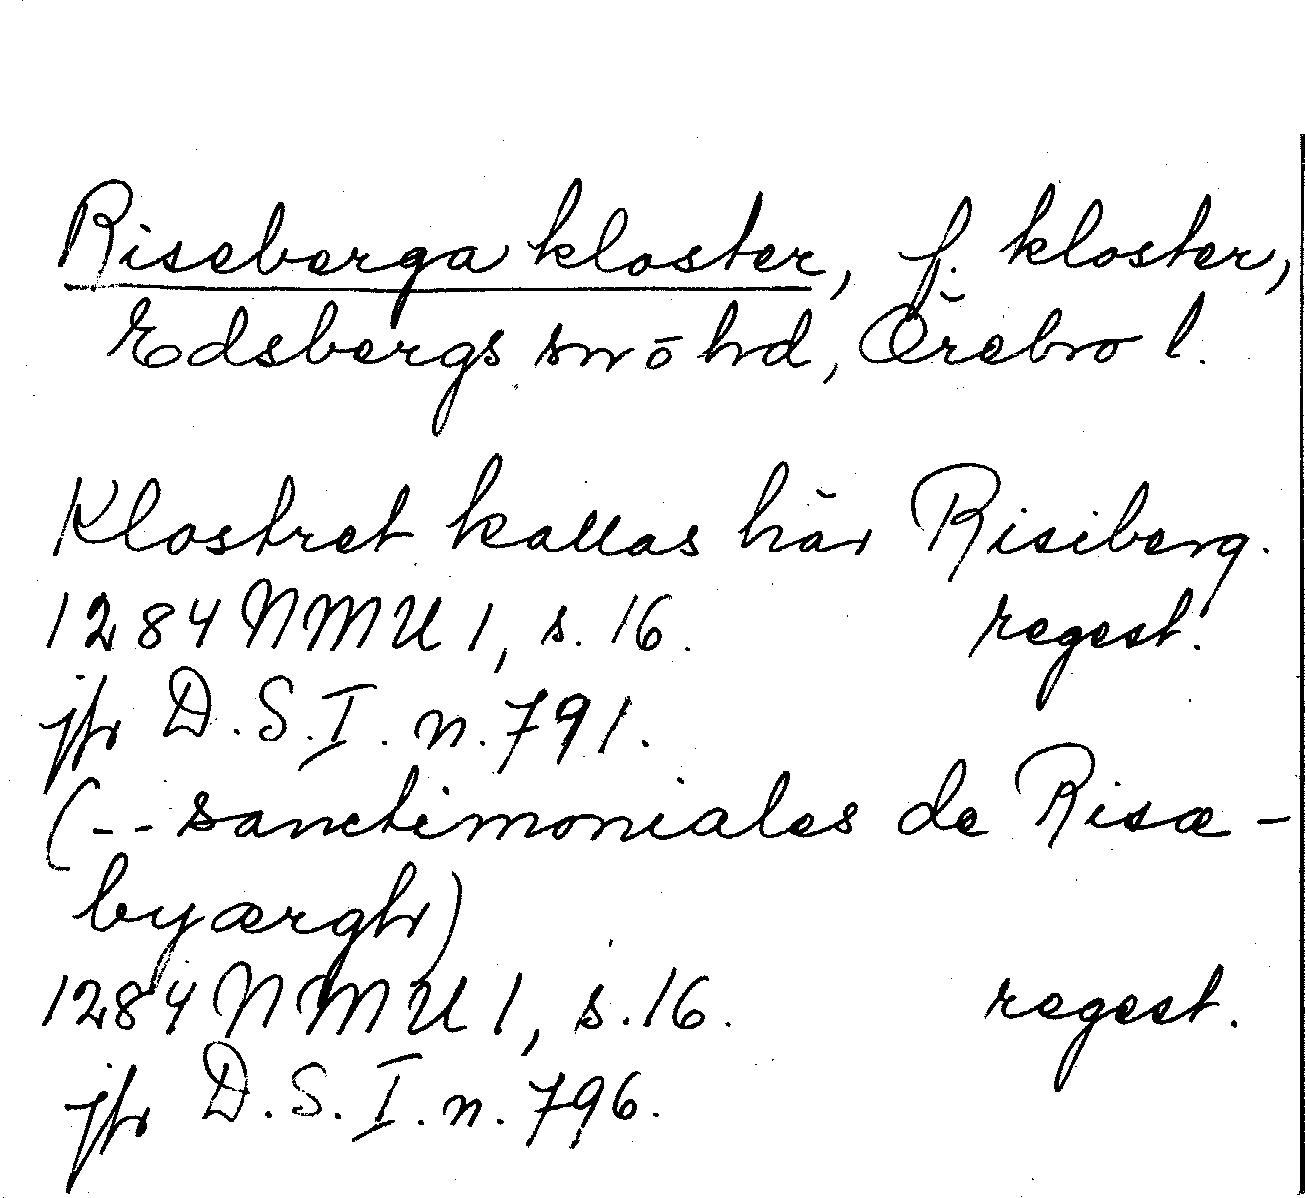 Riseberga kloster, f. kloster,
Edsbergs sn o hd, Örebro l.
Klostret kallas här Risiberg.
1284 NMU 1, s. 16. regest.
jfr D.S. I. n. 791.
(-- sanctimoniales de Risæ-
byærgh)
1284 NMU 1, s. 16. regest.
jfr D.S. I. n. 796.